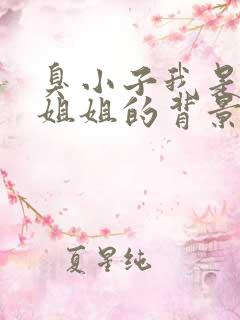 臭小子我是
姐姐的背景
夏星纯